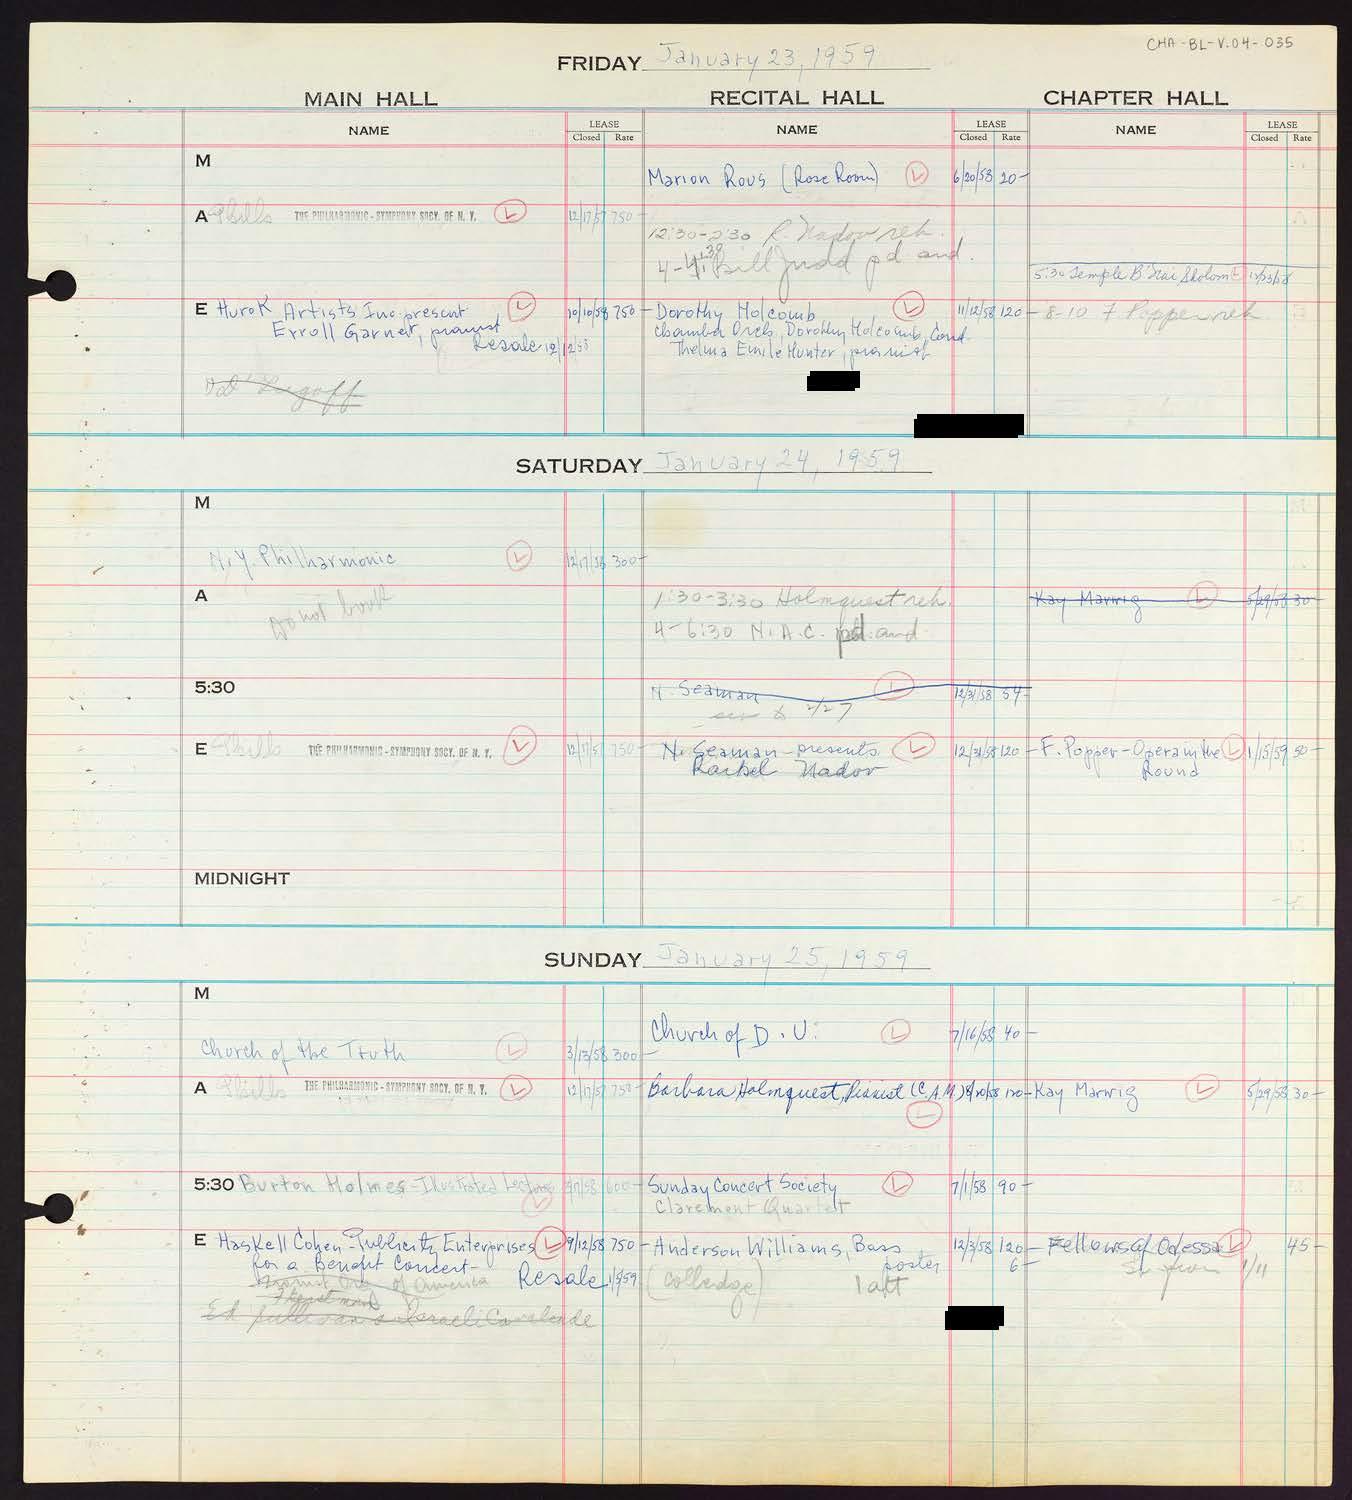 CHA-BL-V.04-035
FRIDAY January 23, 1959
MAIN HALL RECITAL HALL CHAPTER HALL
NAME LEASE Closed Rate NAME LEASE Closed Rate NAME LEASE Closed Rate
M
Marion Rous (Rose Room) L 6/20/58 20-
A Phills THE PHILHARMONIC-SYMPHONY SOCY. OF N. Y. L 12/17/57 750-
12:30-2:30 R. Nadov reh.
4- Bill Judd pd and.
5:30 Temple B'Nai Sholom L
E Hurok Artists Inc present L 10/10/58 750- Dorothy Holcomb L 11/12/58 120- 8-10 F Popper reh
Erroll Garner, pianist Chamber Orch, Dorothy Holcomb, Cond.
Resale 12/12/58 Thelma Emile Hunter, pianist
SATURDAY January 24, 1959
M
N.Y. Philharmonic L 12/17/58 300-
A 1:30-3:30 Holmquest reh. Kay Marwig L 5/29/58 30-
Do not book 4-6:30 N.A.C. pd. and
5:30 N. Seaman L 12/31/58 54-
2/27
E Phills THE PHILHARMONIC-SYMPHONY SOCY. OF N. Y. L 12/17/57 750- N. Seaman presents L 12/31/58 120- F. Popper-Opera in the L 1/15/59 50-
Rachel Nadov Round
MIDNIGHT
SUNDAY January 25, 1959
M
Church of D.U. L 7/16/58 40-
Church of the Truth L 3/13/58 300-
A Phills THE PHILHARMONIC-SYMPHONY SOCY. OF N. Y. L 12/17/57 750- Barbara Holmquest, Pianist (C.A.M.) 120- Kay Marwig L 5/29/58 30-
L
5:30 Burton Holmes-Illustrated Lecture L 600- Sunday Concert Society L 7/1/58 90-
Claremont Quartet
E Haskell Cohen-Publicity Enterprises L 9/12/58 750- Anderson Williams, Bass L 12/3/58 120- Fellows of Odessa L 45-
for a Benefit Concert- poster 6-
Zionist Org of America Resale 1/5/59 (Colledge) 1 att 1/11
Ed Sullivan's Israeli Cavalcade